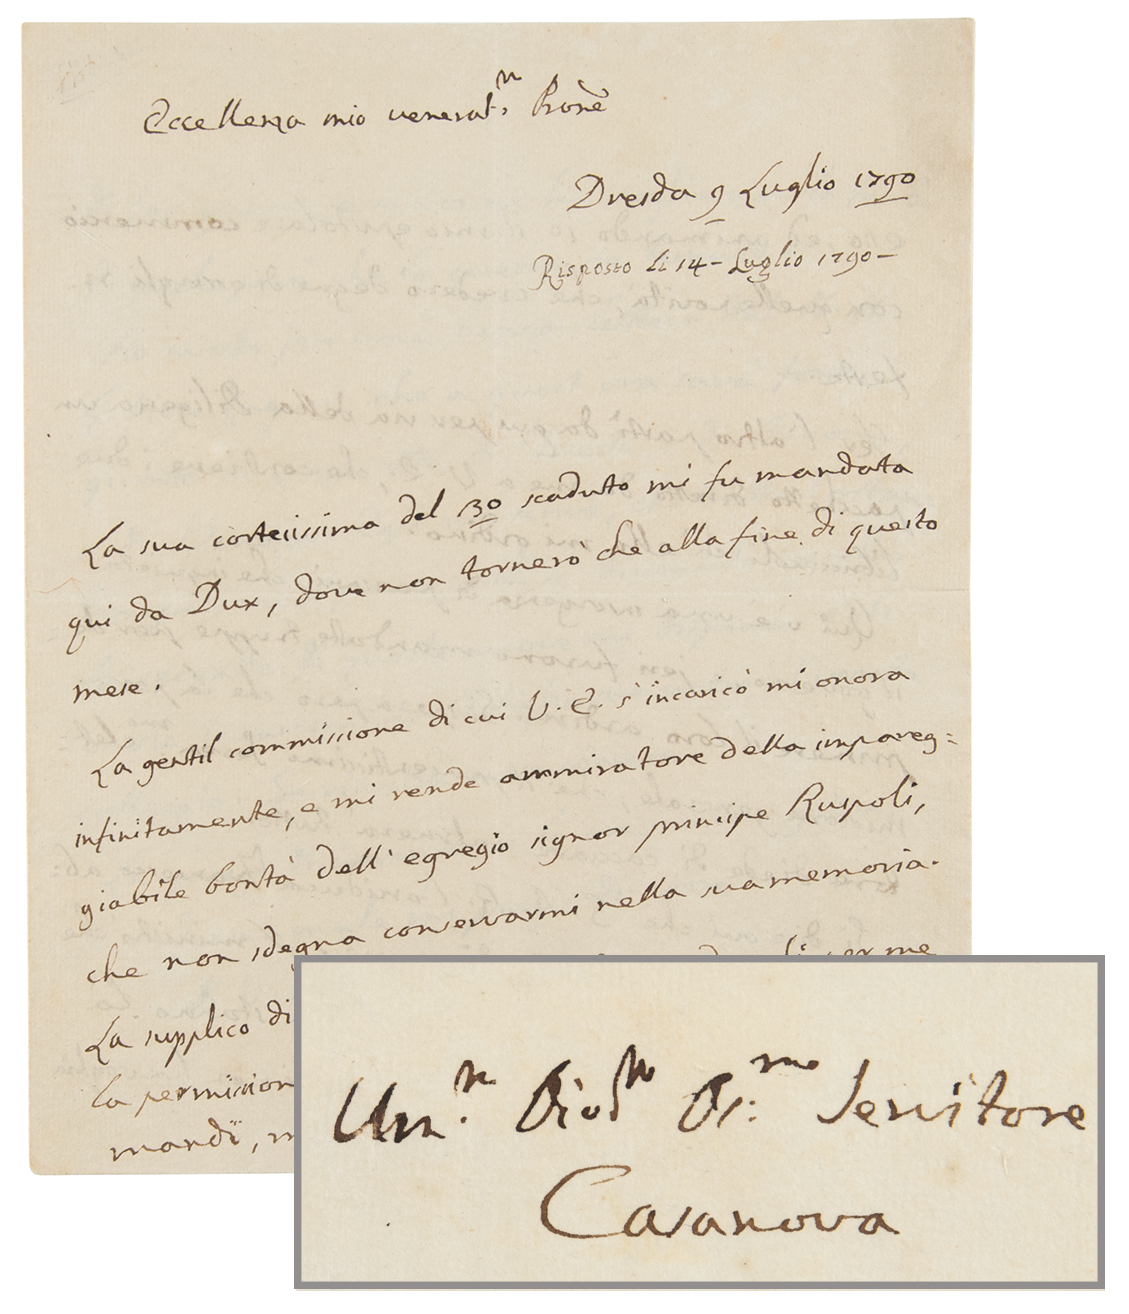 Eccellenza mio venerat.n Prone
Dresda 9 Luglio 1790
Risposto li 14 - Luglio 1790 -
La sua cortesissima del 30 scaduto mi fu mandata
qui da Dux, dove non tornerò che alla fine di questo
mese.
La gentil commissione di cui V. E. s'incaricò mi onora
infinitamente, e mi rende ammiratore della impareg=
giabile bontà dell'egregio signor principe Ruspoli,
che non sdegna conservarmi nella sua memoria.
per me
La supplico di
la permission
mandi,
Um.n Servitore
Casanova